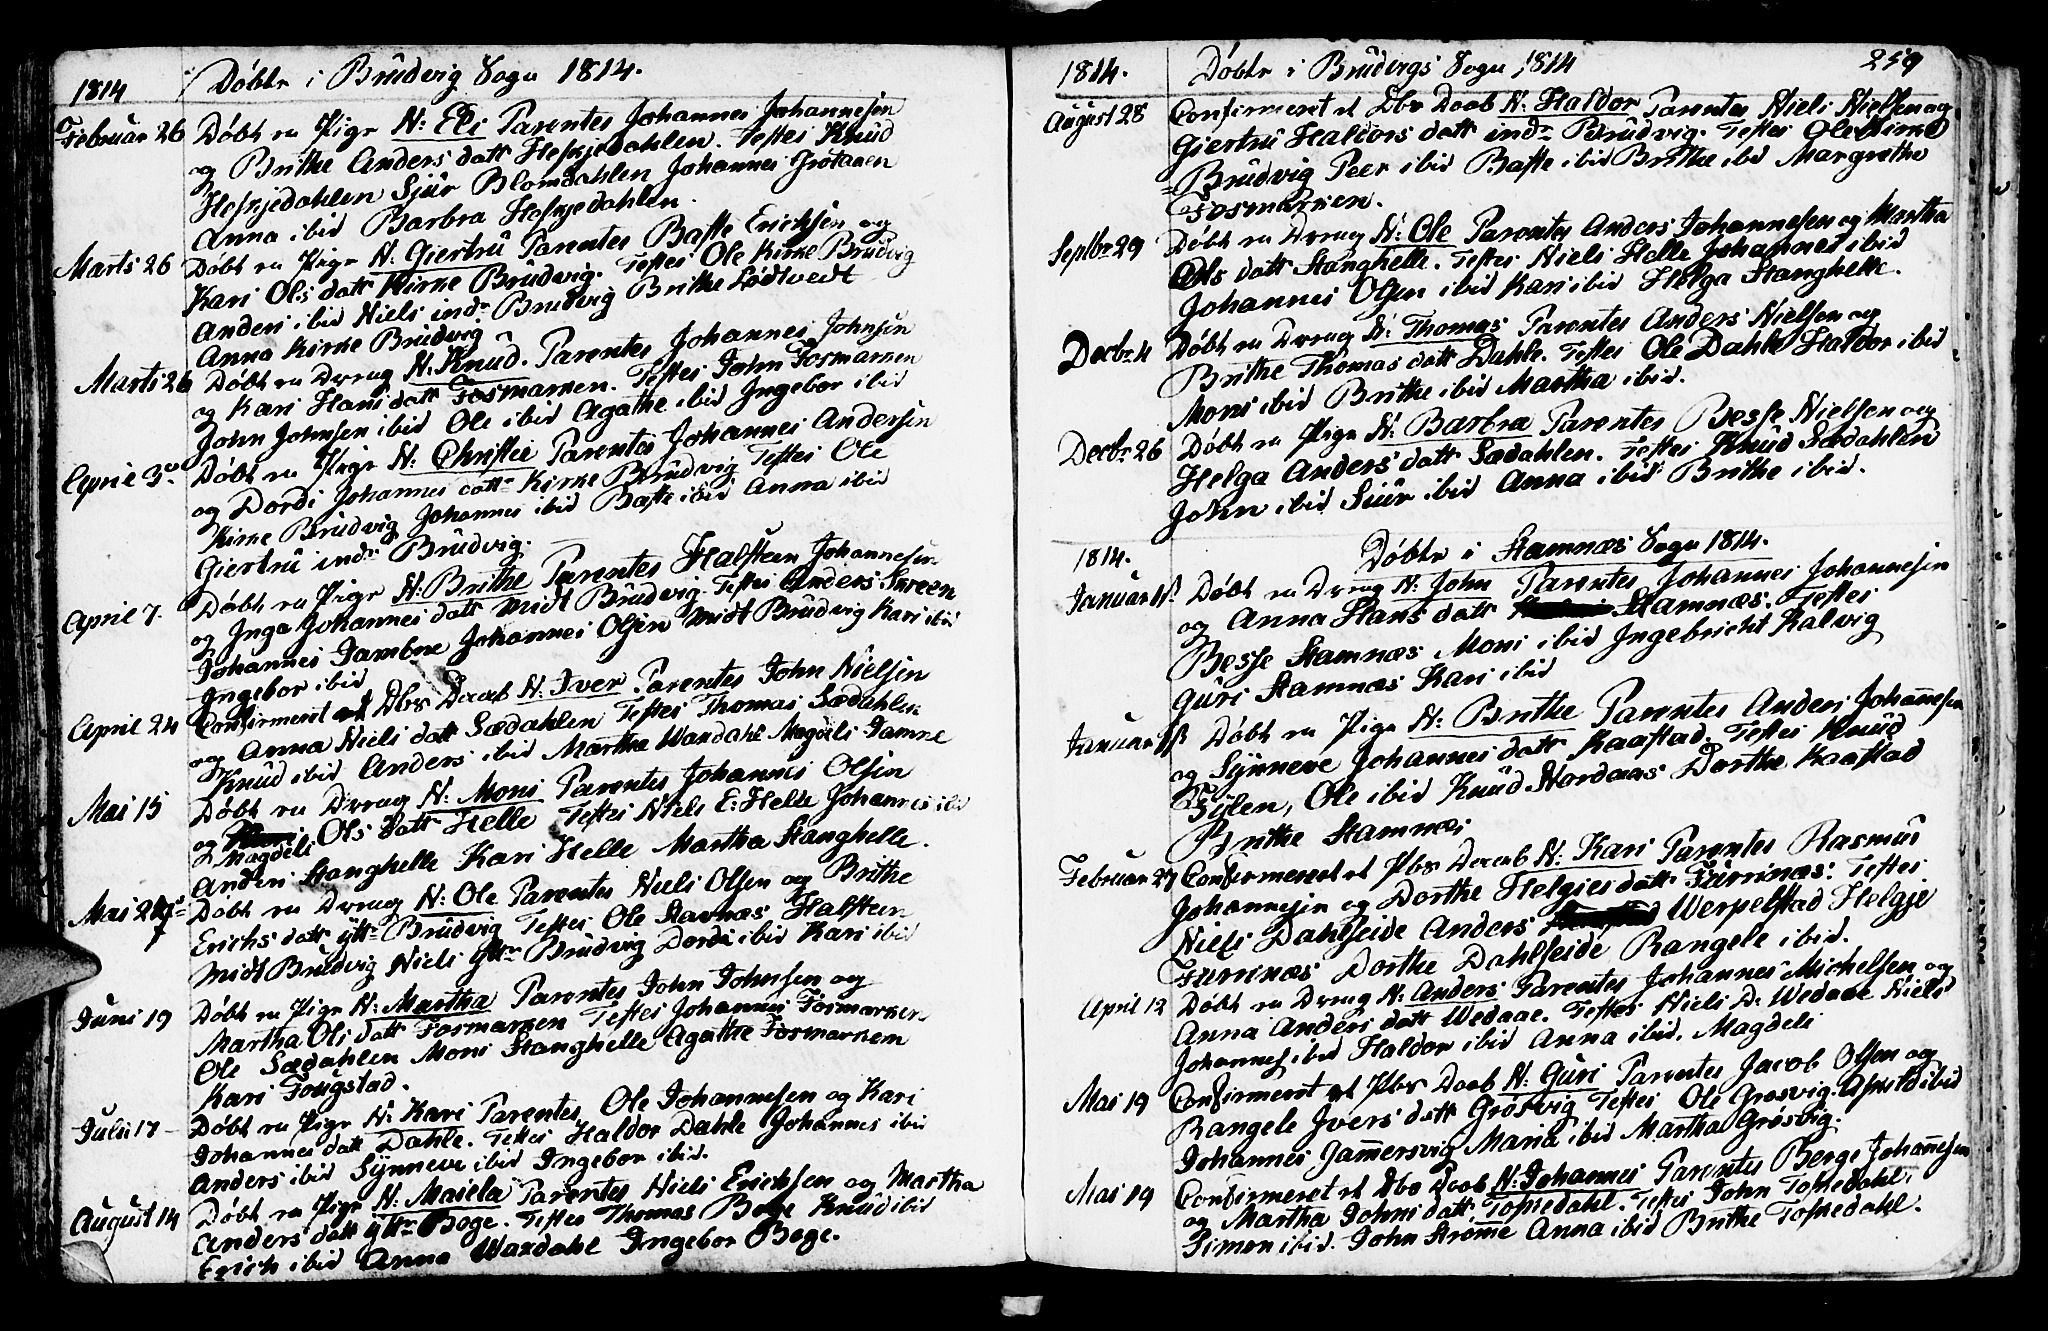 1814 Døbte i Brudvig Sogn 1814.
Februar 26 Døbt en Pige N: Eli Parentes Johannes Johannesen
og Brithe Anders datt Heskjedahlen. Testes Knud
Heskjedahlen Sjur Blomdahlen Johannes
Anna ibid Barbra Heskjedahlen.
Marts 26 Døbt en Pige N: Giertru Parentes Baste Ericksen og
Kari Ols datt Kirke Brudvig. Testes Ole Kirke Brudvig
Anders ibid Niels indr Brudvig Brithe Lødtvedt
Anna Kirke Brudvig
Marts 26 Døbt en Dreng N: Knud. Parentes Johannes Johnsen
og Kari Hans datt Fosmarken. Testes John Fosmarken
John Johnsen ibid Ole ibid Agathe ibid Ingebor ibid
April 3. Døbt en Pige N: Christie Parentes Johannes Andersen
og Dordi Johannes datt Kirke Brudvig Testes Ole
Kirke Brudvig Johannes ibid Baste ibid Anna ibid
Giertru indr Brudvig.
April 7. Døbt en Pige N: Brithe Parentes Halsteen Johannesen
og Inga Johannes datt Midt Brudvig. Testes Anders
Johannes Jambne Johannes Olsen Midt Brudvig Kari ibid
Ingebor ibid
April 24 Confirmeret et Dbs Daab N: Iver Parentes John Nielsen
og Anna Niels datt Sædahlen Testes Thomas Sædahlen
Knud ibid Anders ibid Martha Waxdahl Magdeli Jamne
Mai 15 Døbt en Dreng N: Moni Parentes Johannes Olsen
og Magdeli Ols datt Helle Testes Niels E: Helle Johannes ibid
Anders Stanghelle Kari Helle Martha Stanghelle.
Mai Døbt en Dreng N: Ole Parentes Niels Olsen og Brithe
Erichs datt yttr Brudvig Testes Ole Stavnæs Halsteen
Midt Brudvig Niels yttr Brudvig Dordi ibid Kari ibid
Juni 19 Døbt en Pige N: Martha Parentes John Johnsen og
Martha Ols datt Fosmarken Testes Johannes Fosmarken
Ole Sædahlen Moni Stanghelle Agathe Fosmarken
Kari Fougstad.
Julii 17 Døbt en Pige N: Kari Parentes Ole Johannesen og Kari
Johannes datt Dahle. Testes Haldor Dahle Johannes ibid
Anders ibid Synneve ibid Ingebor ibid.
August 14 Døbt en Pige N: Maiela Parentes Niels Ericksen og Martha
Anders datt yttr Boge. Testes Thomas Boge Knud ibid
Erich ibid Anna Waxdahl Ingebor Boge.
1814. Døbte i Brudvigs Sogn 1814 259
August 28 Confirmeret et Dbs Daab N: Haldor Parentes Niels Nielsen og
Giertru Haldors datt indr Brudvig. Testes Ole Kirke
Brudvig Peer ibid Baste ibid Brithe ibd Margrethe
Fosmarken.
Septbr 29 Døbt en Dreng N: Ole Parentes Anders Johannesen og Martha
Ols datt Stanghelle. Testes Niels Helle Johannes ibid
Johannes Olsen ibid Kari ibid Helga Stanghelle.
Decbr 4 Døbt en Dreng N: Thomas Parentes Anders Nielsen og
Brithe Thomas datt Dahle. Testes Ole Dahle Haldor ibid
Moni ibid Brithe ibid Martha ibid.
Decbr 26 Døbt en Pige N: Barbra Parentes Besse Nielsen og
Helga Anders datt Sædahlen. Testes Knud Sædahlen
John ibid Siur ibid Anna ibid Brithe ibid.
1814. Døbte i Stamnæs Sogn 1814.
Januar Døbt en Dreng N: John Parentes Johannes Johannesen
og Anna Hans datt Stamnæs. Testes
Besse Stamnæs Moni ibid Ingebricht Kalvig
Guri Stamnæs Kari ibid
Januar Døbt en Pige N: Brithe Parentes Anders Johannesen
og Synneve Johannes datt Kaastad. Testes Knud
Fylen, Ole ibid Knud Stordaas Dorthe Kaastad
Brithe Stamnæs
Februar 27 Confirmeret et Pbs Daab N: Kari Parentes Rasmus
Johannesen og Dorthe Helgies datt Furrinæs. Testes
Niels Dahlseide Anders Werpelstad Helgje
Furrinæs Dorthe Dahlseide Rangele ibid.
April 12 Døbt en Dreng N: Anders Parentes Johannes Michelsen og
Anna Anders datt Wedaae. Testes Niels D: Wedaae Niels
Johannes ibid Haldor ibid Anna ibid. Magdeli
Mai 19 Confirmeret et Pbs Daab N: Guri Parentes Jacob Olsen og
Rangele Ivers datt Grøsvig Testes Ole Grøsvig. ibid
Johannes Jam̄ersvig Maria ibid Martha Grøsvig.
Mai 19 Confirmeret et Dbs Daab N: Johannes Parentes Berge Johan̄esen
og Martha Johns datt Toskedahl. Testes John Toskedahl.
Simon ibid. John Strøm̄e Anna ibid Brithe Toskedahl.